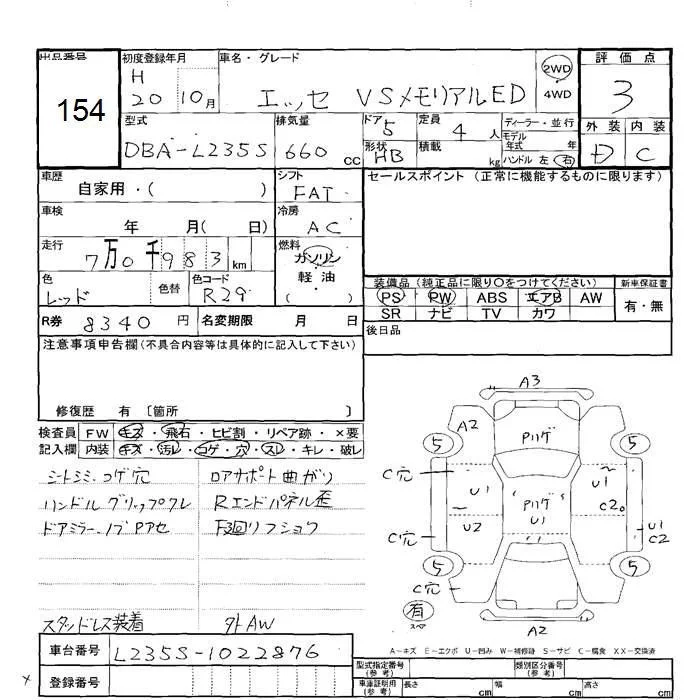 出品番号
154
初度登録年月
H
20 10月
車名・グレード
エッセ VSメモリアルED
2WD
4WD
評価点
3
外装 内装
D C
型式
DBA-L235S
排気量
660 cc
ドア 5
形状 HB
定員
4 人
積載
kg
ディーラー・並行
モデル
年式 年
ハンドル 左 右
車歴
自家用・( )
シフト
FAT
セールスポイント (正常に機能するものに限ります)
車検
年 月( 日)
冷房
AC
走行
7万0千983km
燃料
ガソリン
軽油
( )
色
レッド
色替
色コード
R29
装備品 (純正品に限り○をつけてください)
PS PW ABS エアB AW
SR ナビ TV カワ
新車保証書
有・無
R券 8340円
名変期限 月 日
後日品
注意事項申告欄(不具合内容等は具体的に記入して下さい)
修復歴 有 〔箇所 〕
検査員
記入欄
FW キズ・飛石・ヒビ割・リペア跡・×要
内装 キズ・汚レ・コゲ・穴・スレ・キレ・破レ
シートシミ、コゲ穴
ハンドルグリップクレ
ドアミラーノブPアセ
ロアサポート曲がり
Rエンドパネル歪
下廻リフショク
スタッドレス装着
外AW
A3
A2
5
5
Pハゲ
C穴
U1
U1
C2
Pハゲ
U1
U2
C穴
U1
C2
5
5
C穴
有
スペア
A2
A－キズ E－エクボ U－凹み W－補修跡 S－サビ C－腐食 XX－交換済
車台番号
L235S-1022876
登録番号
型式指定番号
(参考)
類別区分番号
(参考)
車庫証明用
(参考)
長さ cm
幅 cm
高さ cm